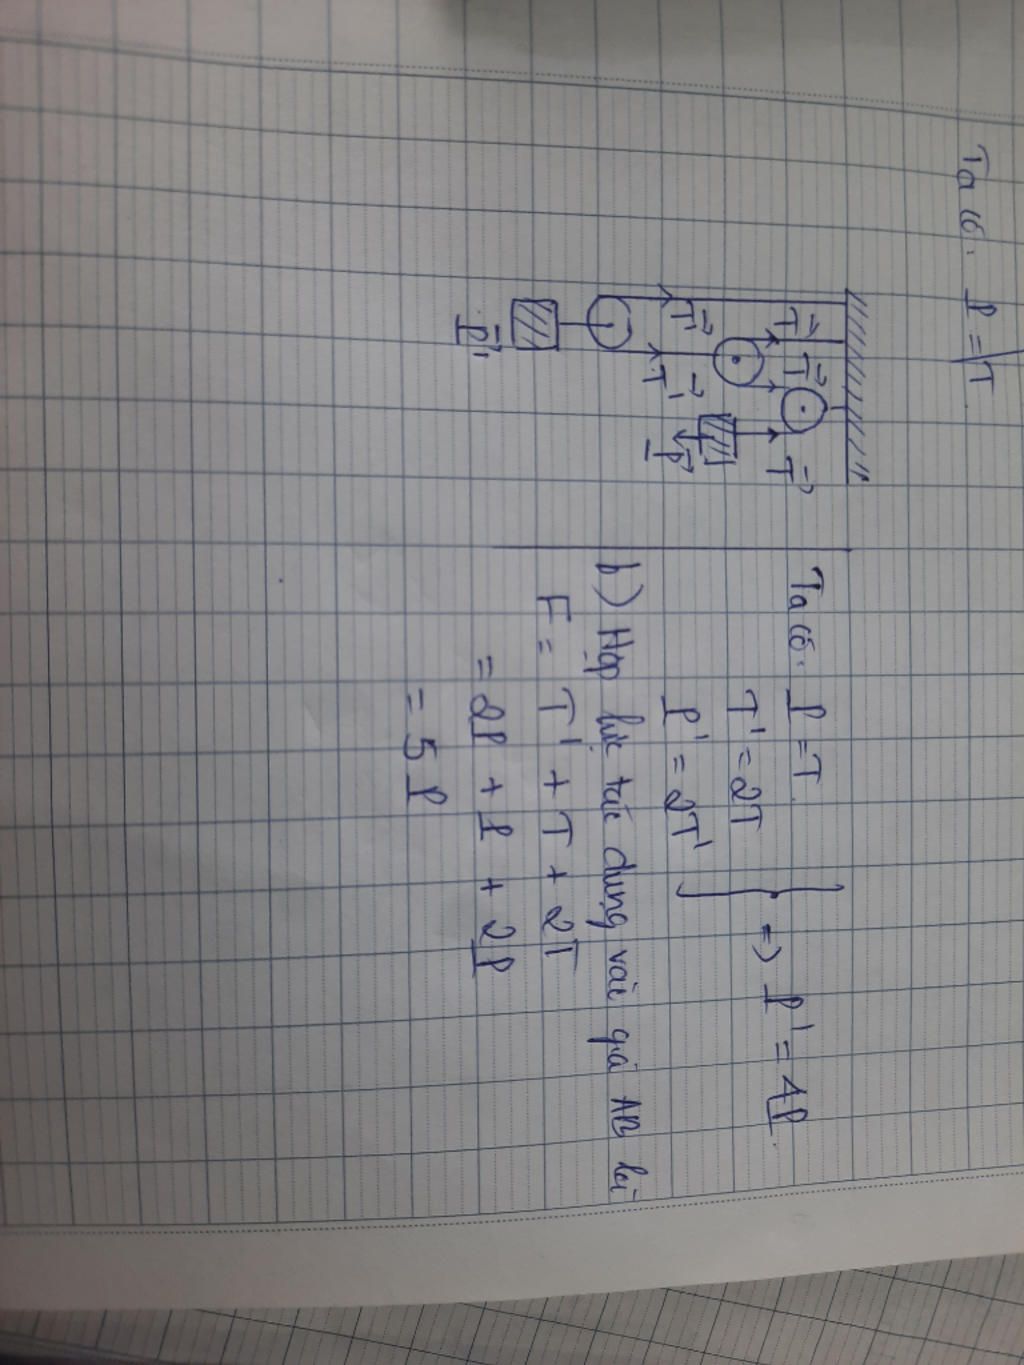 Ta có: P = T
T⃗'
T⃗
T⃗
T⃗'
T⃗'
T⃗
P⃗
P⃗'
Ta có: P = T
T' = 2T
P' = 2T'
=> P' = 4P
b) Hợp lực tác dụng vào giá AB là
F = T' + T + 2T
= 2P + P + 2P
= 5P